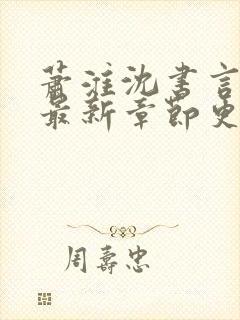 萧淮沈书言
最新章节更
周寿忠